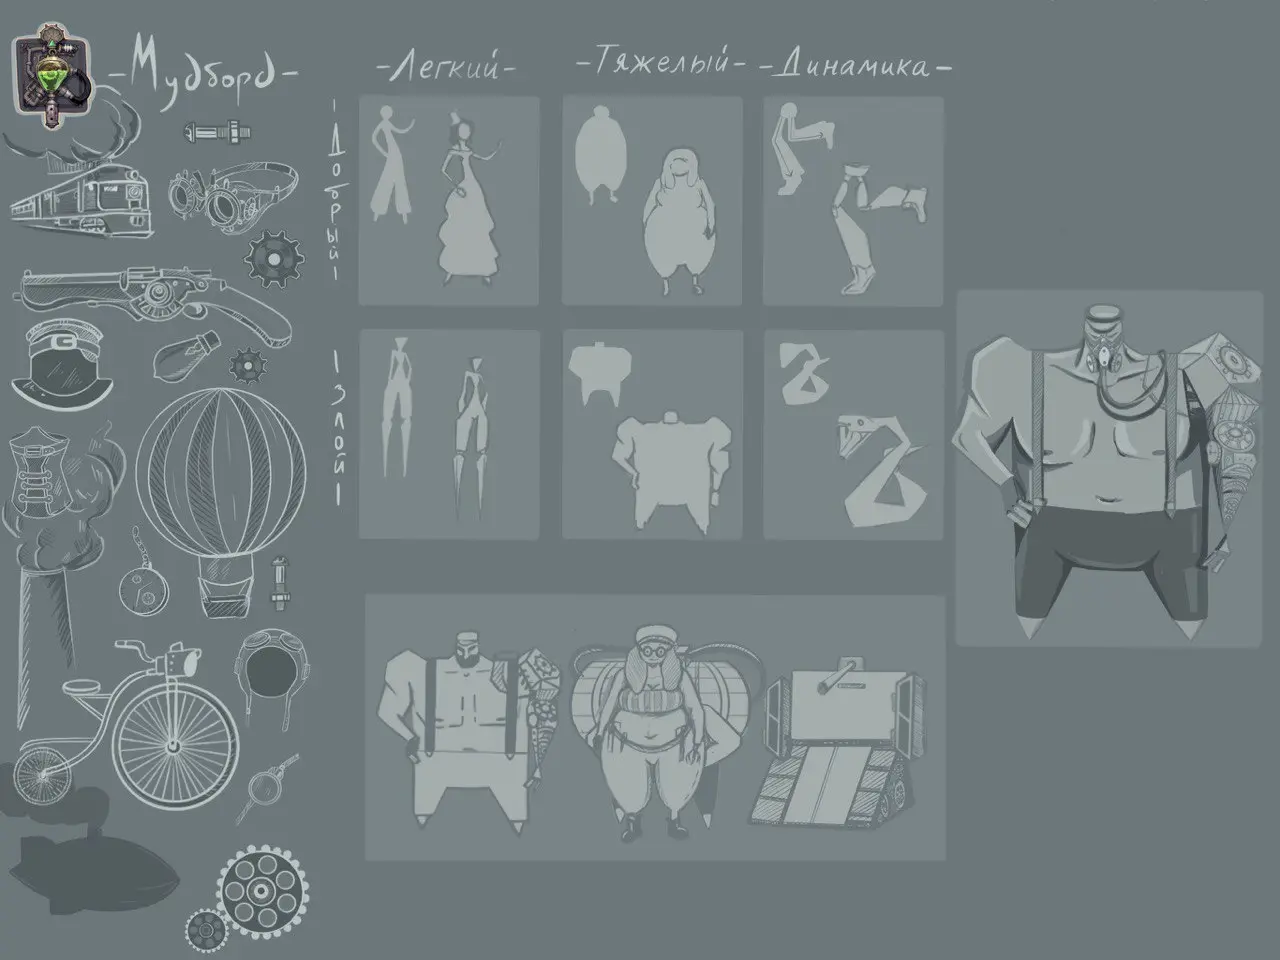 -Мудборд-
-Легкий-
-Тяжелый-
-Динамика-
-Добрый-
-Злой-